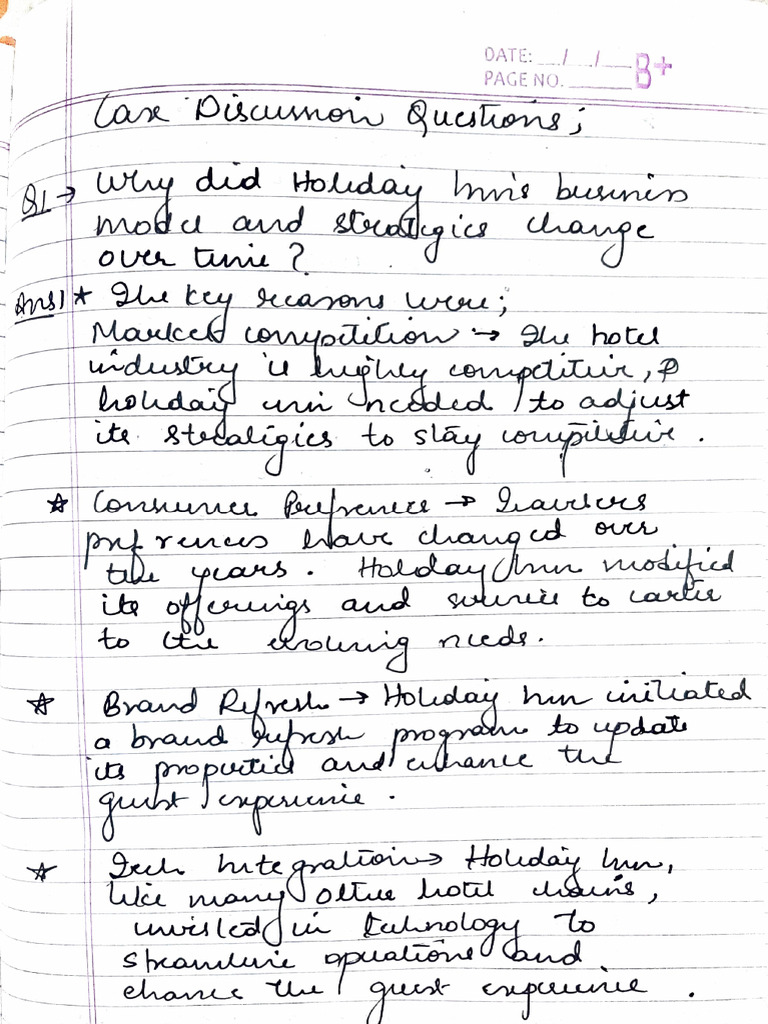 DATE: __/__/____
PAGE NO. ______ B+
Case Discussion Questions;
Q1 → Why did Holiday Inn's business
model and strategies change
over time?
Ans1 * The key reasons were;
Market competition → The hotel
industry is highly competitive, &
holiday inn needed to adjust
its strategies to stay competitive.
* Consumer Preference → Travelers
preferences have changed over
the years. Holiday Inn modified
its offerings and service to cater
to the evolving needs.
* Brand Refresh → Holiday Inn initiated
a brand refresh program to update
its properties and enhance the
guest experience.
* Tech Integration → Holiday Inn,
like many other hotel chains,
invested in technology to
streamline operations and
enhance the guest experience.